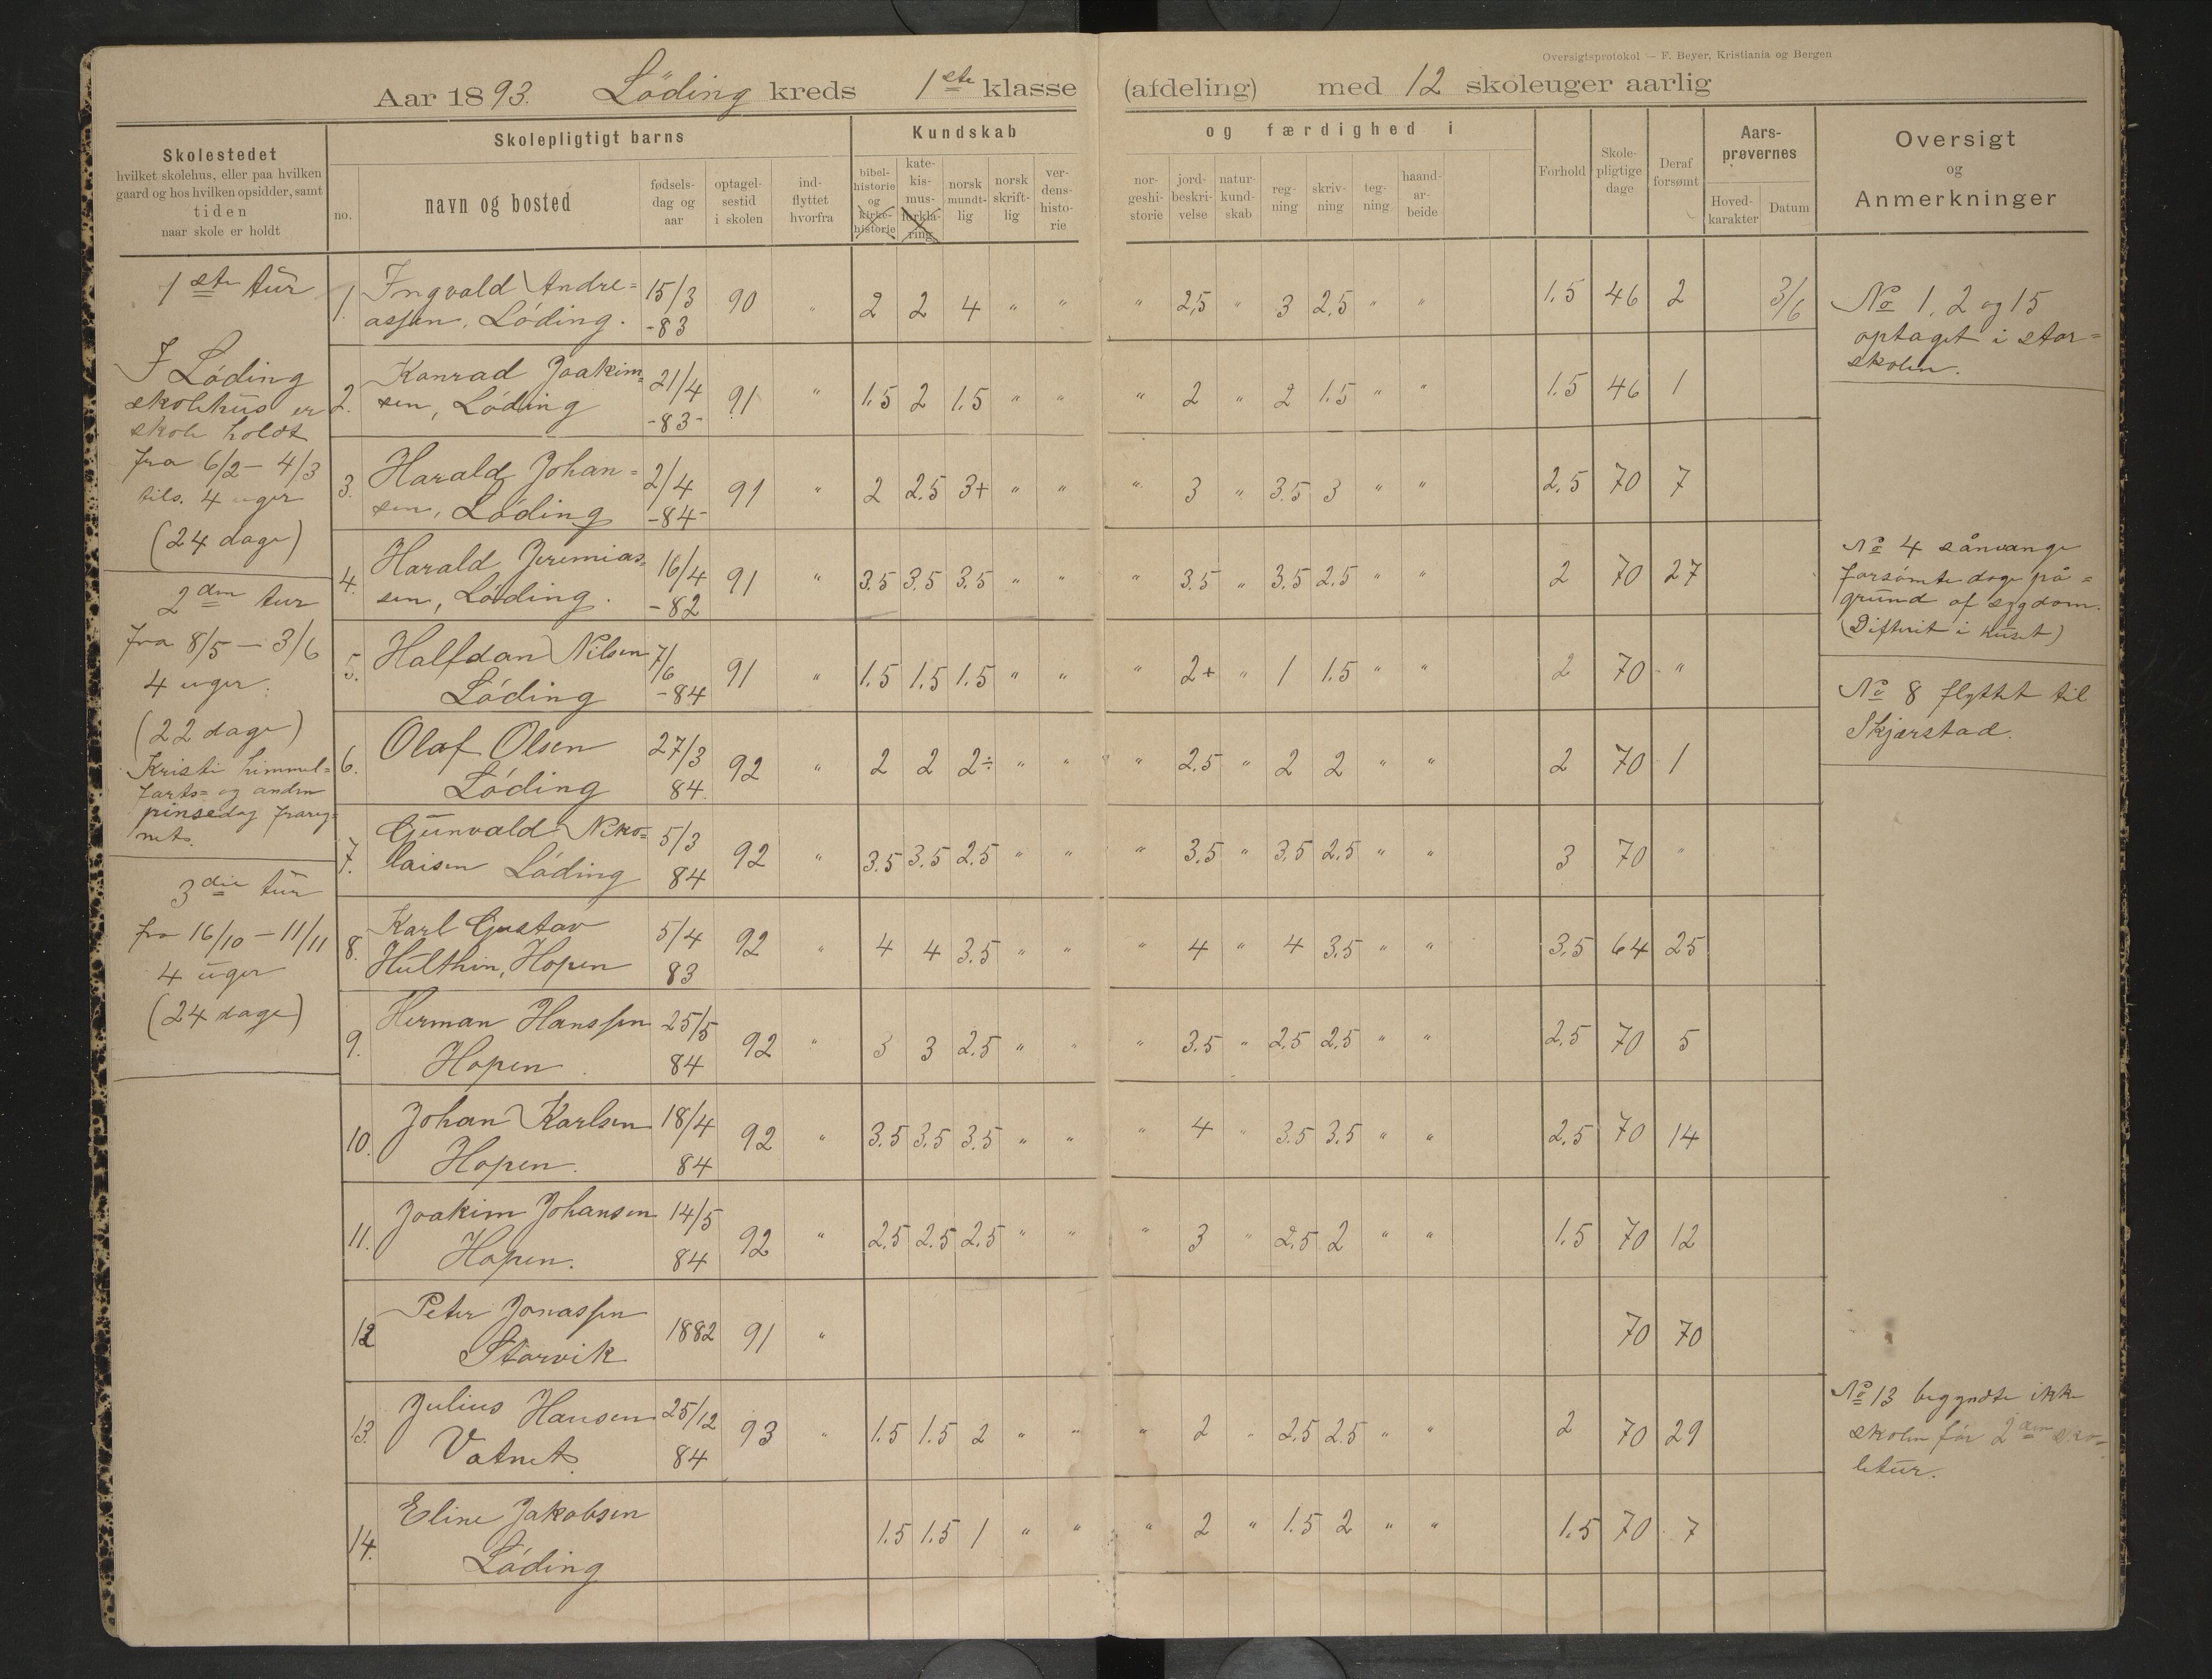 Oversigtsprotokol — F. Beyer, Kristiania og Bergen
Aar 1893. Löding kreds 1ste klasse (afdeling) med 12 skoleuger aarlig
Skolestedet
hvilket skolehus, eller paa hvilken
gaard og hos hvilken opsidder, samt
tiden
naar skole er holdt
Skolepligtigt barns
no.
navn og bosted
fødsels-
dag og
aar
optagel-
sestid
i skolen
ind-
flyttet
hvorfra
Kundskab
bibel-
historie
og
kirke-
historie
kate-
kis-
mus-
forkla-
ring
norsk
mundt-
lig
norsk
skrift-
lig
ver-
dens-
histo-
rie
og færdighed i
nor-
geshi-
storie
jord-
beskri-
velse
natur-
kund-
skab
reg-
ning
skriv-
ning
teg-
ning
haand-
ar-
beide
Forhold
Skole-
pligtige
dage
Deraf
forsømt
Aars-
prøvernes
Hoved-
karakter
Datum
Oversigt
og
Anmerkninger
1ste tur
I Löding
skolehus er
skole holdt
fra 6/2 - 4/3
tils. 4 uger
(24 dage)
2den tur
fra 8/5 - 3/6
4 uger.
(22 dage)
Kristi himmel=
farts= og anden
pinsedag frareg=
net.
3die tur
fra 16/10 - 11/11
4 uger
(24 dage)
1. Ingvald Andre= 15/3 90 " 2 2 4 " " " 2,5 " 3 2,5 " " 1.5 46 2 3/6
assen, Löding. -83
2. Konrad Joakim= 21/4 91 " 1.5 2 1.5 " " " 2 " 2 1.5 " " 1.5 46 1
sen, Löding -83-
3. Harald Johan= 2/4 91 " 2 2.5 3+ " " " 3 " 3.5 3 " " 2.5 70 7
sen, Löding -84-
4. Harald Jeremias= 16/4 91 " 3.5 3.5 3.5 " " " 3.5 " 3.5 2.5 " " 2 70 27
sen, Löding. -82
5. Halfdan Nilsen 7/6 91 " 1.5 1.5 1.5 " " " 2+ " 1 1.5 " " 2 70 "
Löding -84
6. Olaf Olsen 27/3 92 " 2 2 2÷ " " " 2.5 " 2 2 " " 2 70 1
Löding 84.
7. Gunvald Niko= 5/3 92 " 3.5 3.5 2.5 " " " 3.5 " 3.5 2.5 " " 3 70 "
laisen Löding 84
8. Karl Gustav 5/4 92 " 4 4 3.5 " " " 4 " 4 3.5 " " 3.5 64 25
Hulthin, Hopen 83
9. Herman Hanssen 25/5 92 " 3 3 2.5 " " " 3.5 " 2.5 2.5 " " 2.5 70 5
Hopen 84
10. Johan Karlsen 18/4 92 " 3.5 3.5 3.5 " " " 4 " 3.5 3.5 " " 2.5 70 14
Hopen. 84
11. Joakim Johansen 14/5 92 " 2.5 2.5 2.5 " " " 3 " 2.5 2 " " 1.5 70 12
Hopen. 84
12 Peter Jonassen 1882 91 " 70 70
Storvik
13. Julius Hansen 25/12 93 " 1.5 1.5 2 " " " 2 " 2.5 2.5 " " 2 70 29
Vatnet. 84
14. Eline Jakobsen 1.5 1.5 1 " " " 2 " 1.5 2 " " 1.5 70 7
Löding
No 1, 2 og 15
optaget i stor=
skolen.
No 4 sånvange
forsömte dage på=
grund af sygdom.
(Difterit i huset)
No 8 flyttet til
Skjerstad.
No 13 begyndte ikke
skolen för 2den sko=
letur.